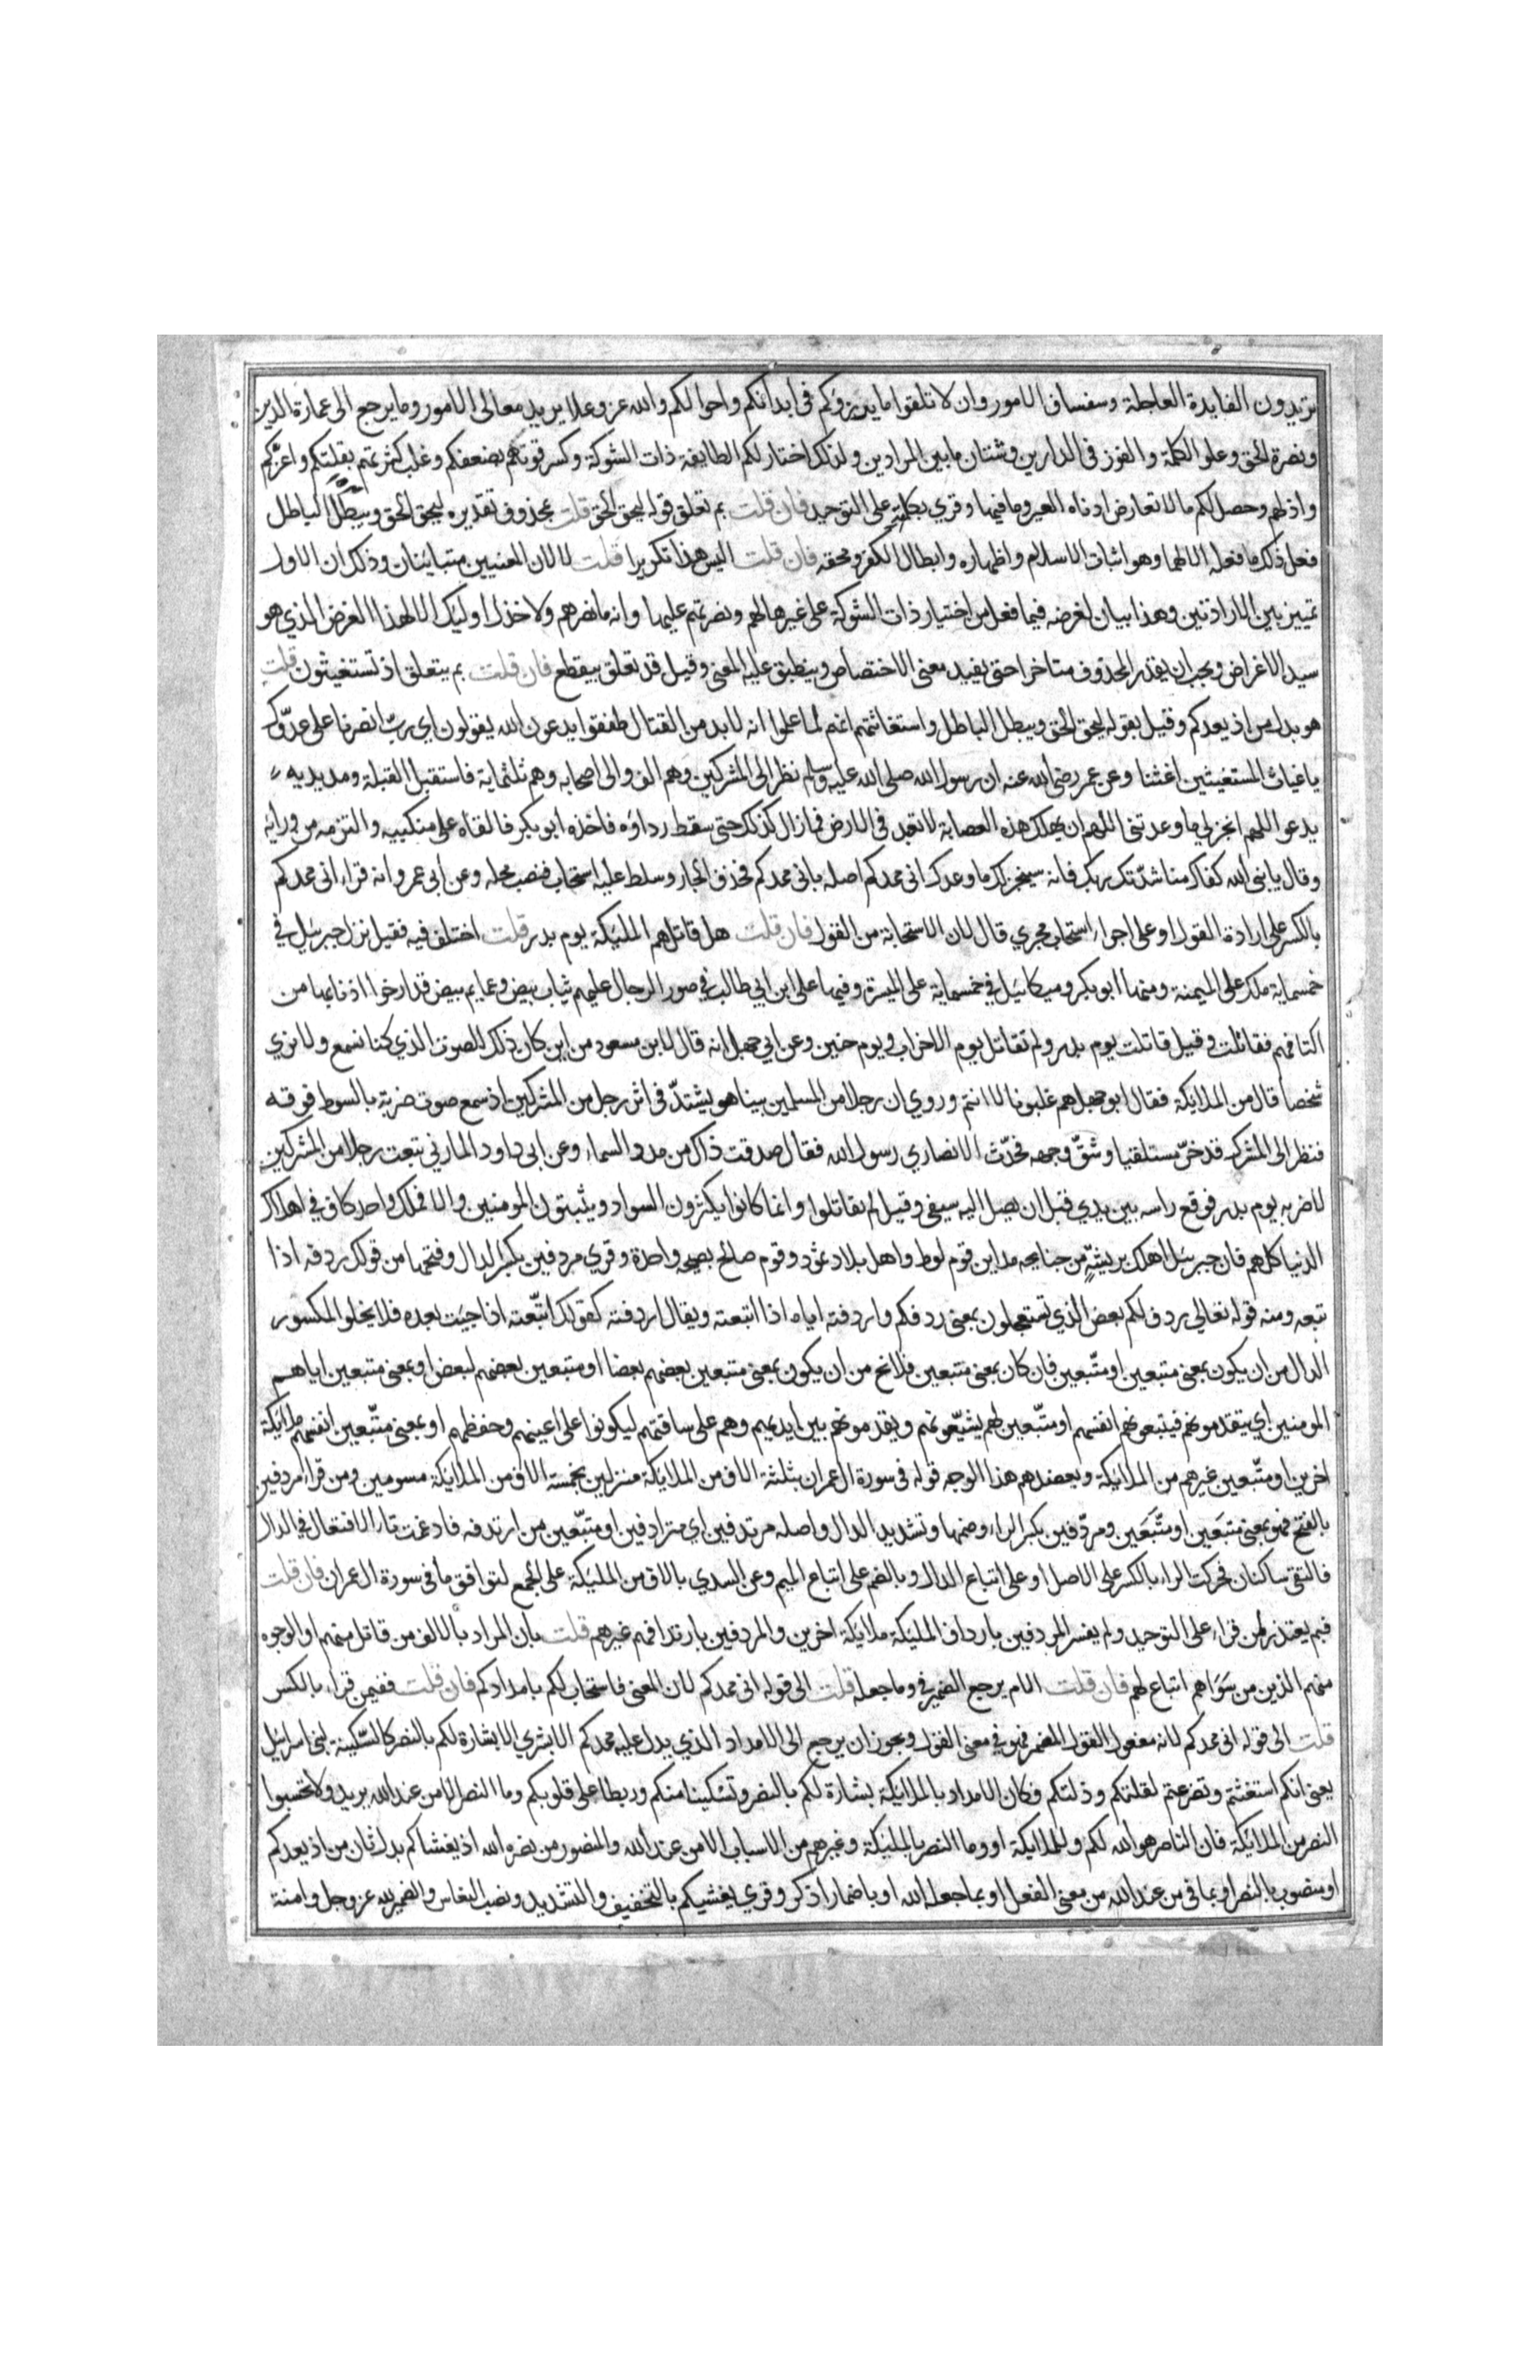 تريدون الفايدة العاجلة وسفساف الامور وان لا تلقوا ما يرزؤكم في ابدانكم واحوالكم والله عز وعلا يريد معالي الامور وما يرجع الى عمارة الدين
ونصرة الحق وعلو الكلمة والفوز في الدارين وشتان ما بين المرادين ولذلك اختار لكم الطايفة ذات الشوكة وكسر قوتهم بضعفكم وغلب كثرتهم بقلتكم واعزكم
واذلهم وحصل لكم ما لا تعارض ادناه العير وما فيها وقري بكلمته على التوحيد فان قلت بم تعلق قوله ليحق الحق قلت بمحذوف تقديره ليحق الحق ويبطل الباطل
فعل ذلك ما فعله الا لهما وهو اثبات الاسلام واظهاره وابطال الكفر ومحقه فان قلت اليس هذا تكريرا قلت لا لان المعنيين متباينان وذلك ان الاول
تمييز بين الارادتين وهذا بيان لغرضه فيما فعل من اختيار ذات الشوكة على غيرها لهم ونصرتهم عليها وانه ما نصرهم ولا خذل اوليك الا لهذا الغرض الذي هو
سيد الاغراض ويجب ان يقدر المحذوف متاخرا حتى يفيد معنى الاختصاص وينطبق عليه المعنى وقيل قد تعلق بيقطع فان قلت بم يتعلق اذ تستغيثون قلت
هو بدل من اذ يعدكم وقيل بقوله ليحق الحق ويبطل الباطل واستغاثتهم انهم لما علموا انه لا بد من القتال طفقوا يدعون الله يقولون اي رب انصرنا على عدوك
يا غياث المستغيثين اغثنا وعن عمر رضي الله عنه ان رسول الله صلى الله عليه وسلم نظر الى المشركين وهم الف والى اصحابه وهم ثلثماية فاستقبل القبلة ومد يديه
يدعو اللهم انجز لي ما وعدتني اللهم ان تهلك هذه العصابة لا تعبد في الارض فما زال كذلك حتى سقط رداؤه فاخذه ابو بكر فالقاه على منكبيه والتزمه من ورايه
وقال يا نبي الله كفاك مناشدتك ربك فانه سينجز لك ما وعدك اني ممدكم اصله باني ممدكم فحذف الجار وسلط عليه استجاب فنصب محله وعن ابي عمرو انه قراء اني ممدكم
بالكسر على ارادة القول او على اجراء استجاب مجري قال لان الاستجابة من القول فان قلت هل قاتلهم المليكة يوم بدر قلت اختلف فيه فقيل نزل جبريل في
خمسماية ملك على الميمنة ومنها ابو بكر وميكائيل في خمسماية على الميسرة وفيها على ابن ابي طالب في صور الرجال عليهم ثياب بيض وعمايم بيض قد ارخوا اذنابها من
اكتافهم فقاتلت وقيل قاتلت يوم بدر ولم تقاتل يوم الاحزاب ويوم حنين وعن ابي جهل انه قال لابن مسعود من اين كان ذلك الصوت الذي كنا نسمع ولا نري
شخصا قال من الملايكة فقال ابو جهل هم غلبونا لا انتم وروي ان رجلا من المسلمين بينا هو يشتد في اثر رجل من المشركين اذ سمع صوت ضربة بالسوط فوقه
فنظر الى المشرك قد خر مستلقيا وشق وجهه فحدث الانصاري رسول الله فقال صدقت ذاك من مدد السماء وعن ابى داود المازني تبعت رجلا من المشركين
لاضربه يوم بدر فوقع راسه بين يدي قبل ان يصل اليه سيفي وقيل لم يقاتلوا وانما كانوا يكثرون السواد ويثبتون المومنين والا فملك واحد كاف في اهلاك
الدنيا كلهم فان جبريل اهلك بريشة من جناحه مداين قوم لوط واهل بلاد ثمود وقوم صالح بصيحة واحدة وقري مردفين بكسر الدال وفتحها من قولك ردفه اذا
تبعه ومنه قوله تعالي ردف لكم بعض الذي تستعجلون بمعنى ردفكم واردفته اياه اذا اتبعته ويقال اردفته كقولك اتبعته اذا جيت بعده فلا يخلو المكسور
الدال من ان يكون بمعنى متبعين او متبعين فان كان بمعنى متبعين فلا يخ من ان يكون بمعنى متبعين بعضهم بعضا او متبعين بعضهم لبعض او بمعنى متبعين اياهم
المومنين اي يتقدمونهم فيتبعونهم انفسهم او متبعين لهم يشيعونهم ويقدمونهم بين ايديهم وهم على ساقتهم ليكونوا على اعينهم وحفظهم او بمعنى متبعين انفسهم ملائكة
اخرين او متبعين غيرهم من الملائكة ويعضدهم هذا الوجه قوله في سورة ال عمران بثلثة الاف من الملايكة منزلين بخمسة الاف من الملايكة مسومين ومن قراء مردفين
بالفتح فهو بمعنى متبعين او متبعين ومردفين بكسر الراء وضمها وتشديد الدال واصله مرتدفين اي مترادفين او متبعين من ارتدفه فادغمت تاء الافتعال في الدال
فالتقى ساكنان فحركت الراء بالكسر على الاصل او على اتباع الدال وبالضم على اتباع الميم وعن السدي بالاف من المليكة على الجمع لتوافق ما في سورة ال عمران فان قلت
فبم يعتذر لمن قراء على التوحيد ولم يفسر المردفين بارداف المليكة ملايكة اخرين والمردفين بارتدافهم غيرهم قلت بان المراد بالالف من قاتل منهم او الوجوه
منهم الذين من سواهم اتباع لهم فان قلت الام يرجع الضمير في وما جعله قلت الى قوله اني ممدكم لان المعنى فاستجاب لكم بامدادكم فان قلت ففيمن قراء بالكسر
قلت الى قوله اني ممدكم لانه مفعول القول المضمر فهو في معنى القول ويجوز ان يرجع الى الامداد الذي يدل عليه ممدكم الا بشري الا بشارة لكم بالنصر كالسكينة لبني اسرائيل
يعني انكم استغثتم وتضرعتم لقلتكم وذلتكم فكان الامداد بالملائكة بشارة لكم بالنصر وتسكينا منكم وربطا على قلوبكم وما النصر الا من عند الله يريد ولا تحسبوا
النصر من الملائكة فان الناصر هو الله لكم وللملايكة او وما النصر بالمليكة وغيرهم من الاسباب الا من عند الله والمنصور من نصره الله اذ يغشاكم بدل ثان من اذ يعدكم
او منصوب بالنصر او بما في من عند الله من معنى الفعل او بما جعله الله او باضمار اذكر وقري يغشيكم بالتخفيف والتشديد ونصب النعاس والضمير لله عز وجل وامنة